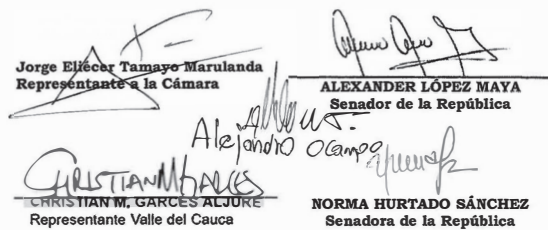 Jorge Eliécer Tamayo Marulanda
Representante a la Cámara
ALEXANDER LÓPEZ MAYA
Senador de la República
Alejandro Ocampo
CHRISTIAN M. GARCES
CHRISTIAN M. GARCÉS ALJURE
Representante Valle del Cauca
NORMA HURTADO SÁNCHEZ
Senadora de la República